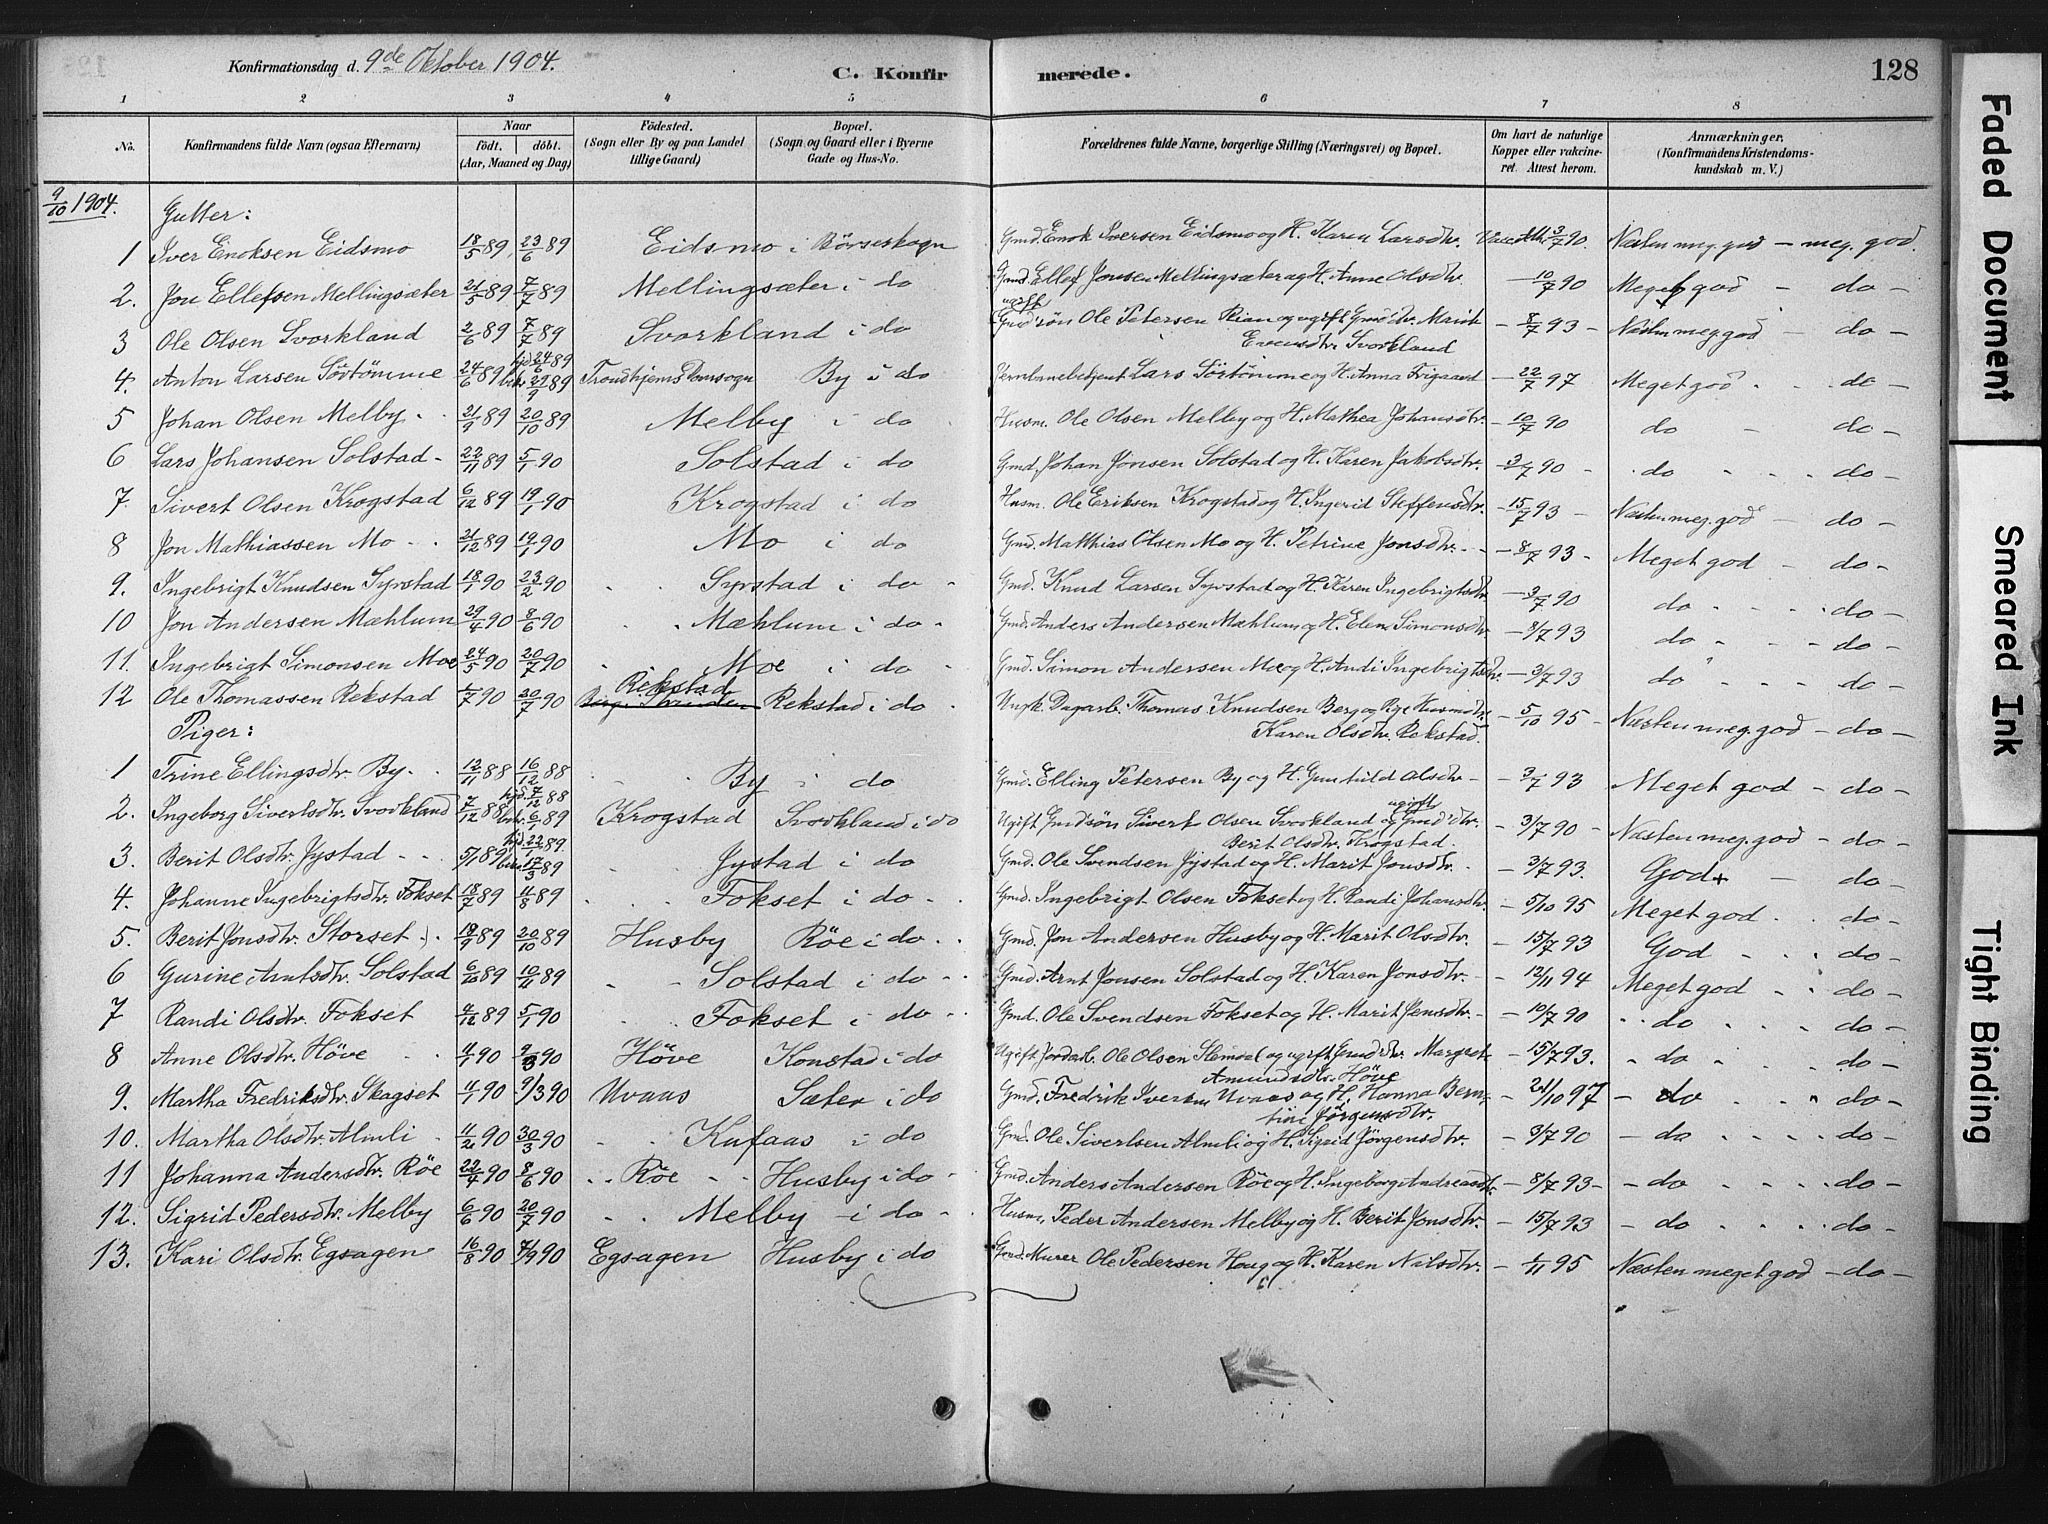 Konfirmationsdag d. 9de Oktober 1904.
C. Konfirmerede.
128
1 2 3 4 5 6 7 8
No. Konfirmandens fulde Navn (ogsaa Efternavn) Naar født. døbt. (Aar, Maaned og Dag) Fødested. (Sogn eller By og paa Landet tillige Gaard) Bopæl. (Sogn og Gaard eller i Byerne Gade og Hus-No. Forældrenes fulde Navne, borgerlige Stilling (Næringsvei) og Bopæl. Om havt de naturlige Kopper eller vakcineret. Attest herom. Anmærkninger, (Konfirmandens Kristendomskundskab m. V.)
9/10 1904. Gutter:
1 Iver Enoksen Eidsmo 18/5 89 23/6 89 Eidsmo i Børseskogn Gmd. Enok Iversen Eidsmo og H. Karen Larsdtr. 3/7 90. Næsten meg. god – meg. god.
2. Jon Ellefsen Mellingsæter 21/5 89 7/7 89 Mellingsæter i do Gmd. Ellef Jonsen Mellingsæter og H. Anne Olsdtr – 10/7 90 Meget god – do –
3 Ole Olsen Svorkland 2/6 89 7/7 89 Svorkland i do ugift Gmd'søn Ole Petersen Rian og ugift Gmd'dtr. Marit – 8/7 93 – Næsten meg. god – do –
Evensdtr. Svorkland
4. Anton Larsen Sørtømme 24/6 89 hjd. 24/6 89 bekr. 29/9 89 Trondhjems Domsogn By i do Jernbanebetjent Lars Sørtømme og H. Anna Frigaard – 22/7 97 Meget god . . do –
5 Johan Olsen Melby. 21/9 89 20/10 89 Melby i do Husm. Ole Olsen Melby og H. Mathea Johansdtr. – 10/7 90 do – do –
6 Lars Johansen Solstad – 22/11 89 5/1 90 Solstad i do Gmd. Johan Jonsen Solstad og H. Karen Jakobsdtr. – 3/7 90 – do . . . do –
7. Sivert Olsen Krogstad 6/12 89 19/1 90 Krogstad i do Husm. Ole Eriksen Krogstad og H. Ingerid Steffensdtr. – 15/7 93 – Næsten meg. god – do –
8 Jon Mathiassen Mo . . 21/12 89 19/1 90 Mo i do Gmd. Matthias Olsen Mo og H. Petrine Jonsdtr. – – 8/7 93 – Meget god – do –
9. Ingebrigt Knudsen Syrstad 18/1 90 23/2 90 . . Syrstad i do – Gmd. Knud Larsen Syrstad og H. Karen Ingebrigtsdtr – 3/7 90 do . . . do –
10 Jon Andersen Mæhlum 29/4 90 8/6 90 . . Mæhlum i do – Gmd. Anders Andersen Mæhlum og H. Elen Simonsdtr – 8/7 93 do . . . do –
11. Ingebrigt Simonsen Moe 24/5 90 20/7 90 . . Moe i do – Gmd. Simon Andersen Moe og H. Andi Ingebrigtsdtr. – 3/7 93 do " . . do –
12 Ole Thomassen Rekstad 1/7 90 20/7 90 Rekstad Berg. Strinden Rekstad i do . Ungk. Dagarb. Thomas Knudsen Berg og Pige Husmdtr – 5/10 95 – Næsten meg. god – do –
Karen Olsdtr. Rekstad.
Piger:
1 Trine Ellingsdtr. By . . 12/11 88 16/12 88 . . By i do Gmd. Elling Petersen By og H. Gunhild Olsdtr – – 3/7 93 Meget god – do –
2. Ingeborg Sivertsdtr. Svorkland 7/12 88 hjd. 7/12 88 bekr. 6/1 89 Krogstad Svorkland i do Ugift Gmdsøn Sivert Olsen Svorkland og ugift Gmd'dtr. – 3/7 90 – Næsten meg. god – do –
Berit Olsdtr. Krogstad.
3. Berit Olsdtr. Jystad . . 5/1 89 hjd. 22/1 89 bekr. 17/3 89 . . Jystad i do Gmd. Ole Svendsen Jystad og H. Marit Jonsdtr. – 3/7 93. God – do –
4. Johanne Ingebrigtsdtr. Fokset 18/7 89 11/8 89 . . . Fokset i do . . Gmd. Ingebrigt Olsen Fokset og H. Randi Johansdtr. – 5/10 95 Meget god . . do –
5. Berit Jonsdtr. Storset . 18/9 89 20/10 89 Husby Røe i do . . Gmd. Jon Andersen Husby og H. Marit Olsdtr. – 15/7 93 God . . . do –
6 Gurine Arntsdtr. Solstad 6/10 89 10/11 89 . . Solstad i do – . Gmd. Arnt Jonsen Solstad og H. Karen Jonsdtr. – – 12/11 94 Meget god . . do –
7 Randi Olsdtr. Fokset 4/12 89 5/1 90 . . Fokset i do – . Gmd. Ole Svendsen Fokset og H. Marit Jensdtr. – – 10/7 90 . . do . . . do –
8 Anne Olsdtr. Høve . . 4/1 90 9/3 90 Høve Konstad i do Ugift Jordarb. Ole Olsen Slemdal og ugift Gmd'dtr. Margret – 15/7 93. – do . . do –
Amundsdtr. Høve
9. Martha Fredriksdtr. Skagset 4/1 90 9/3 90 Uvaas Sæter i do Gmd. Fredrik Iversen Uvaas og H. Hanna Bern- – 21/10 97 – do . . " do –
tine Jørgensdtr.
10. Martha Olsdtr. Almli . 11/2 90 30/3 90 . . Kufaas i do Gmd. Ole Sivertsen Almli og H. Sigrid Jørgensdtr. – 3/7 90 – do . . . do –
11 Johanna Andersdtr. Røe 22/4 90 8/6 90 . . Røe . . Husby i do – Gmd. Anders Andersen Røe og H. Ingeborg Andreasdtr. – 8/7 93 – – do . . . do –
12. Sigrid Pedersdtr. Melby 6/6 90 20/7 90 . . Melby – i do – . Husm. Peder Andersen Melby og H. Berit Jonsdtr. – 15/7 93 – do . . . do –
13. Kari Olsdtr. Egsagen 16/8 90 7/9 90 Egsagen Husby i do Gmd. Murer Ole Pedersen Houg og H. Karen Nilsdtr. – 1/11 95 Næsten meget god – do –
Faded Document
Smeared Ink
Tight Binding